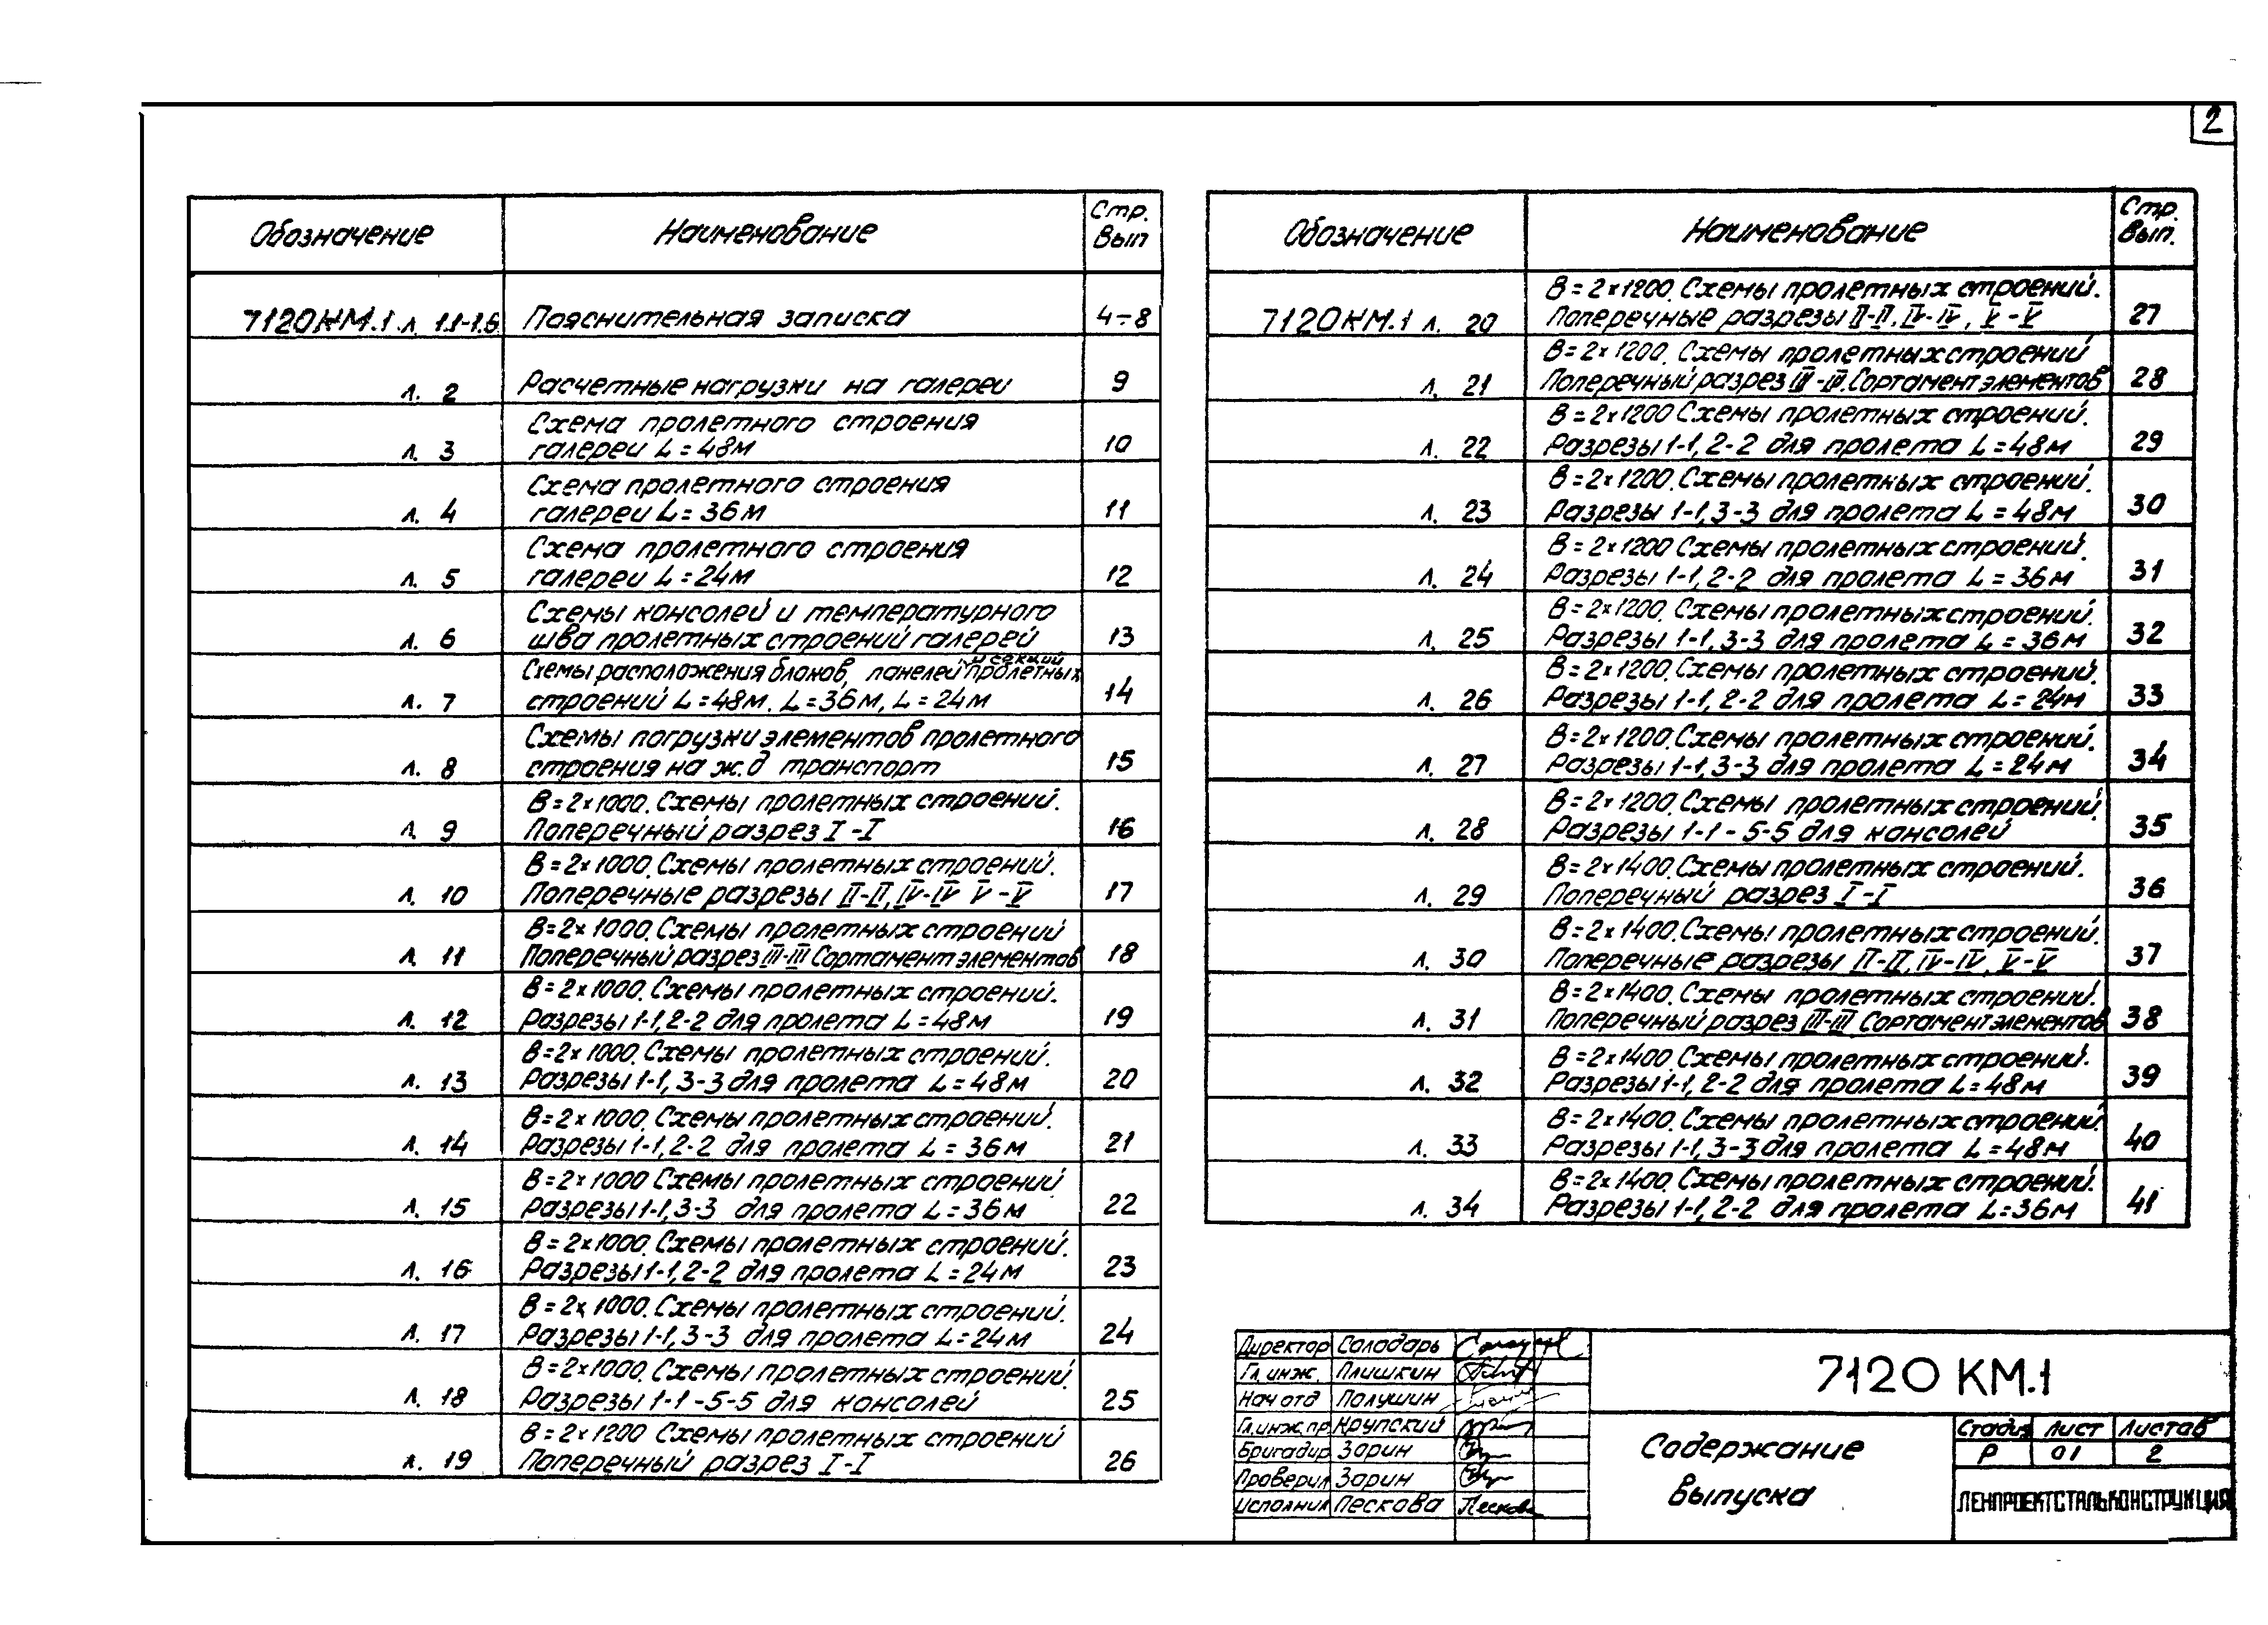 2
Обозначение Наименование Стр. Вып
7120КМ.1 л. 1.1-1.5 Пояснительная записка 4÷8
л. 2 Расчетные нагрузки на галереи 9
л. 3 Схема пролетного строения
галереи L=48м 10
л. 4 Схема пролетного строения
галереи L=36м 11
л. 5 Схема пролетного строения
галереи L=24м 12
л. 6 Схемы консолей и температурного
шва пролетных строений галерей 13
л. 7 Схемы расположения блоков, панелей и секций пролетных
строений L=48м. L=36м, L=24м 14
л. 8 Схемы погрузки элементов пролетного
строения на ж.д транспорт 15
л. 9 В=2×1000. Схемы пролетных строений.
Поперечный разрез I-I 16
л. 10 В=2×1000. Схемы пролетных строений.
Поперечные разрезы II-II, IV-IV V-V 17
л. 11 В=2×1000. Схемы пролетных строений
Поперечный разрез III-III Сортамент элементов 18
л. 12 В=2×1000. Схемы пролетных строений.
Разрезы 1-1, 2-2 для пролета L=48м 19
л. 13 В=2×1000. Схемы пролетных строений.
Разрезы 1-1, 3-3 для пролета L=48м 20
л. 14 В=2×1000. Схемы пролетных строений.
Разрезы 1-1, 2-2 для пролета L=36м 21
л. 15 В=2×1000 Схемы пролетных строений
Разрезы 1-1, 3-3 для пролета L=36м 22
л. 16 В=2×1000. Схемы пролетных строений.
Разрезы 1-1, 2-2 для пролета L=24м 23
л. 17 В=2×1000. Схемы пролетных строений.
Разрезы 1-1, 3-3 для пролета L=24м 24
л. 18 В=2×1000. Схемы пролетных строений.
Разрезы 1-1 - 5-5 для консолей 25
л. 19 В=2×1200 Схемы пролетных строений
Поперечный разрез I-I 26
Обозначение Наименование Стр. Вып.
7120КМ.1 л. 20 В=2×1200. Схемы пролетных строений.
Поперечные разрезы II-II, IV-IV, V-V 27
л. 21 В=2×1200. Схемы пролетных строений
Поперечный разрез III-III. Сортамент элементов 28
л. 22 В=2×1200 Схемы пролетных строений.
Разрезы 1-1, 2-2 для пролета L=48м 29
л. 23 В=2×1200. Схемы пролетных строений.
Разрезы 1-1, 3-3 для пролета L=48м 30
л. 24 В=2×1200 Схемы пролетных строений.
Разрезы 1-1, 2-2 для пролета L=36м 31
л. 25 В=2×1200. Схемы пролетных строений.
Разрезы 1-1, 3-3 для пролета L=36м 32
л. 26 В=2×1200. Схемы пролетных строений.
Разрезы 1-1, 2-2 для пролета L=24м 33
л. 27 В=2×1200. Схемы пролетных строений.
Разрезы 1-1, 3-3 для пролета L=24м 34
л. 28 В=2×1200. Схемы пролетных строений.
Разрезы 1-1 - 5-5 для консолей 35
л. 29 В=2×1400. Схемы пролетных строений.
Поперечный разрез I-I 36
л. 30 В=2×1400. Схемы пролетных строений.
Поперечные разрезы II-II, IV-IV, V-V 37
л. 31 В=2×1400. Схемы пролетных строений.
Поперечный разрез III-III Сортамент элементов 38
л. 32 В=2×1400. Схемы пролетных строений.
Разрезы 1-1, 2-2 для пролета L=48м 39
л. 33 В=2×1400. Схемы пролетных строений.
Разрезы 1-1, 3-3 для пролета L=48м 40
л. 34 В=2×1400. Схемы пролетных строений.
Разрезы 1-1, 2-2 для пролета L=36м 41
Директор Солодарь
Гл.инж. Плишкин
Нач отд Полушин
Гл.инж.пр Крупский
Бригадир Зарин
Проверил Зарин
Исполнил Пескова Пескова
7120 КМ.1
Содержание
выпуска
Стадия Лист Листов
Р 01 2
ЛЕНПРОЕКТСТАЛЬКОНСТРУКЦИЯ